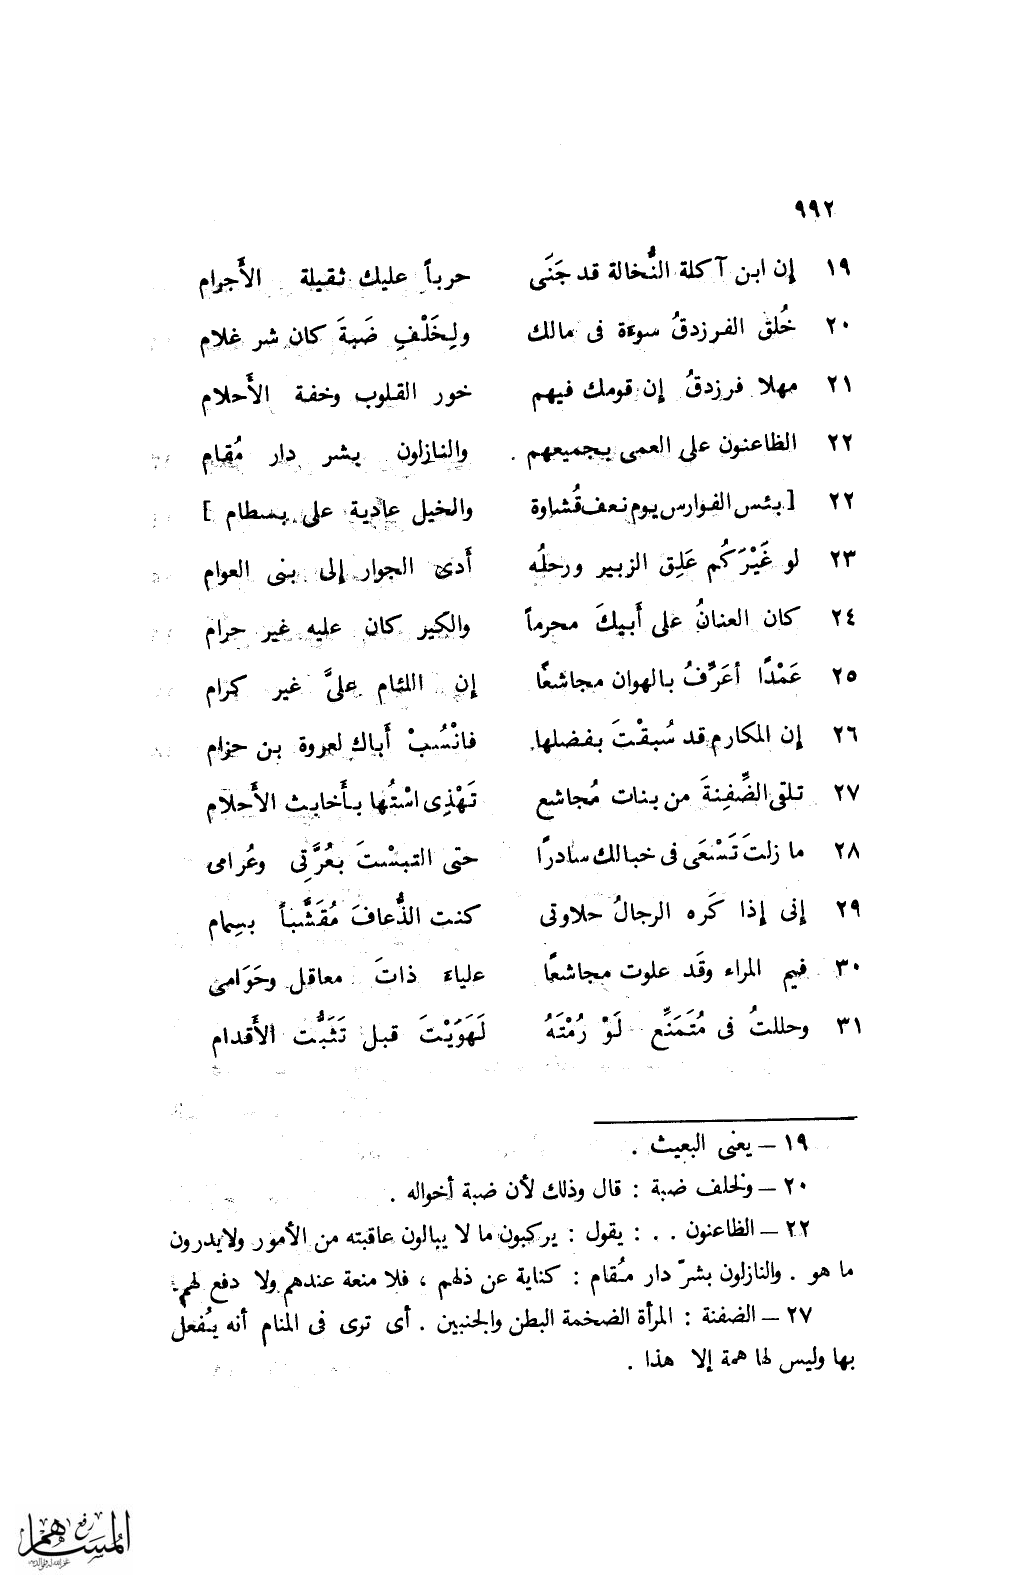 ٩٩٢
١٩ إن ابن آكلة النُّخالة قد جَنَى حرباً عليك ثقيلة الأَجرام
٢٠ خُلق الفرزدقُ سوءة فى مالك ولِخَلْفِ ضَبةَ كان شر غلام
٢١ مهلا فرزدقُ إن قومك فيهم خور القلوب وخفة الأَحلام
٢٢ الظاعنون على العمى بجميعهم والنازلون بشر دار مُقام
٢٢ [ بئس الفوارس يوم نعف قُشاوة والخيل عادية على بسطام ]
٢٣ لو غَيْرَكُم عَلِق الزبير ورحلُه أَدى الجوار إلى بنى العوام
٢٤ كان العنانُ على أَبيكَ محرماً والكير كان عليه غير حرام
٢٥ عَمْدًا أُعَرِّفُ بالهوان مجاشعًا إن اللئام علىَّ غير كرام
٢٦ إن المكارم قد سُبقْتَ بفضلها فانْسُبْ أَباك لعروة بن حزام
٢٧ تلقى الضِّفِنةَ من بنات مُجاشع تَهْذِى اسْتُها بأَخابث الأَحلام
٢٨ ما زلتَ تَسْعَى فى خبالك سادرًا حتى التبسْتَ بعُرَّتِى وعُرامى
٢٩ إنى إذا كَره الرجالُ حلاوتى كنت الذُّعافَ مُقَشَّباً بسِمام
٣٠ فيم المراء وقَد علوت مجاشعًا علياءَ ذاتَ معاقل وحَوَامى
٣١ وحللتُ فى مُتَمَنِّع لَوْ رُمْتَهُ لَهَوَيْتَ قبل تَثَبُّت الأَقدام
١٩ – يعنى البعيث .
٢٠ – ولخلف ضبة : قال وذلك لأن ضبة أخواله .
٢٢ – الظاعنون . . : يقول : يركبون ما لا يبالون عاقبته من الأمور ولا يدرون
ما هو . والنازلون بشرّ دار مُقام : كناية عن ذلهم ، فلا منعة عندهم ولا دفع لهم .
٢٧ – الضفنة : المرأة الضخمة البطن والجنبين . أى ترى فى المنام أنه يُفعل
بها وليس لها همة إلا هذا .
رفع
المساهم